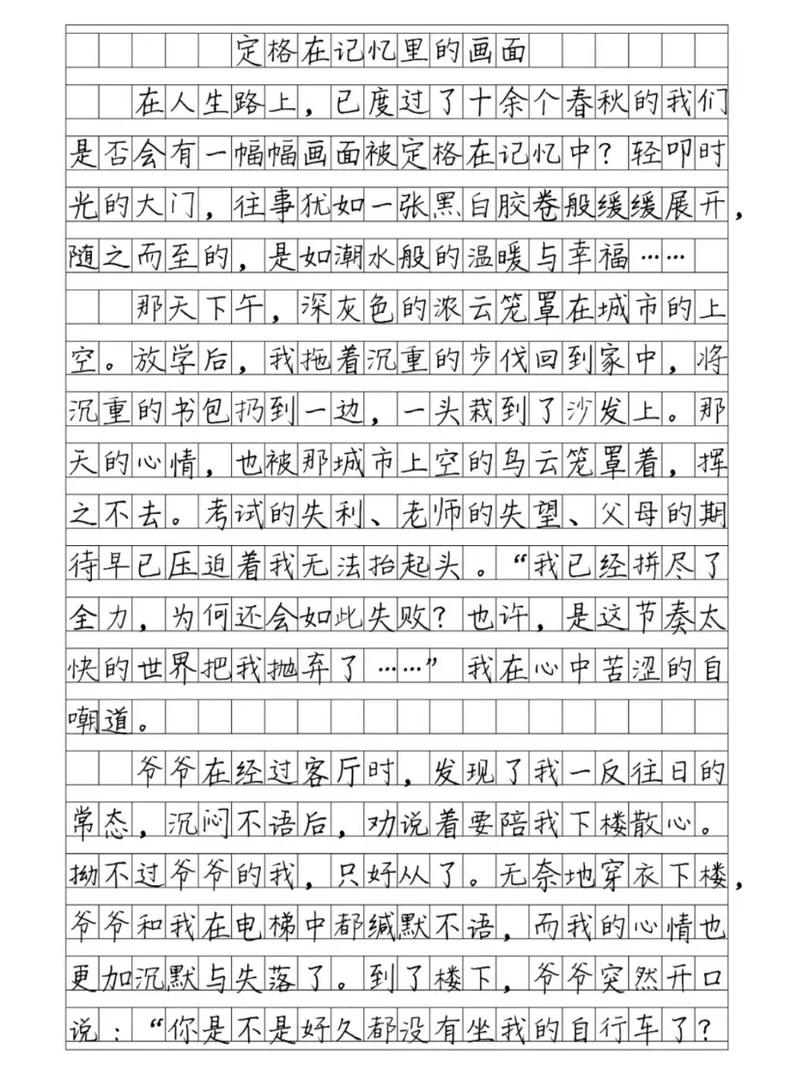 定格在记忆里的画面
在人生路上，已度过了十余个春秋的我们
是否会有一幅幅画面被定格在记忆中？轻叩时
光的大门，往事犹如一张黑白胶卷般缓缓展开，
随之而至的，是如潮水般的温暖与幸福……
那天下午，深灰色的浓云笼罩在城市的上
空。放学后，我拖着沉重的步伐回到家中，将
沉重的书包扔到一边，一头栽到了沙发上。那
天的心情，也被那城市上空的鸟云笼罩着，挥
之不去。考试的失利、老师的失望、父母的期
待早已压迫着我无法抬起头。“我已经拼尽了
全力，为何还会如此失败？也许，是这节奏太
快的世界把我抛弃了……”我在心中苦涩的自
嘲道。
爷爷在经过客厅时，发现了我一反往日的
常态，沉闷不语后，劝说着要陪我下楼散心。
拗不过爷爷的我，只好从了。无奈地穿衣下楼，
爷爷和我在电梯中都缄默不语，而我的心情也
更加沉默与失落了。到了楼下，爷爷突然开口
说：“你是不是好久都没有坐我的自行车了？